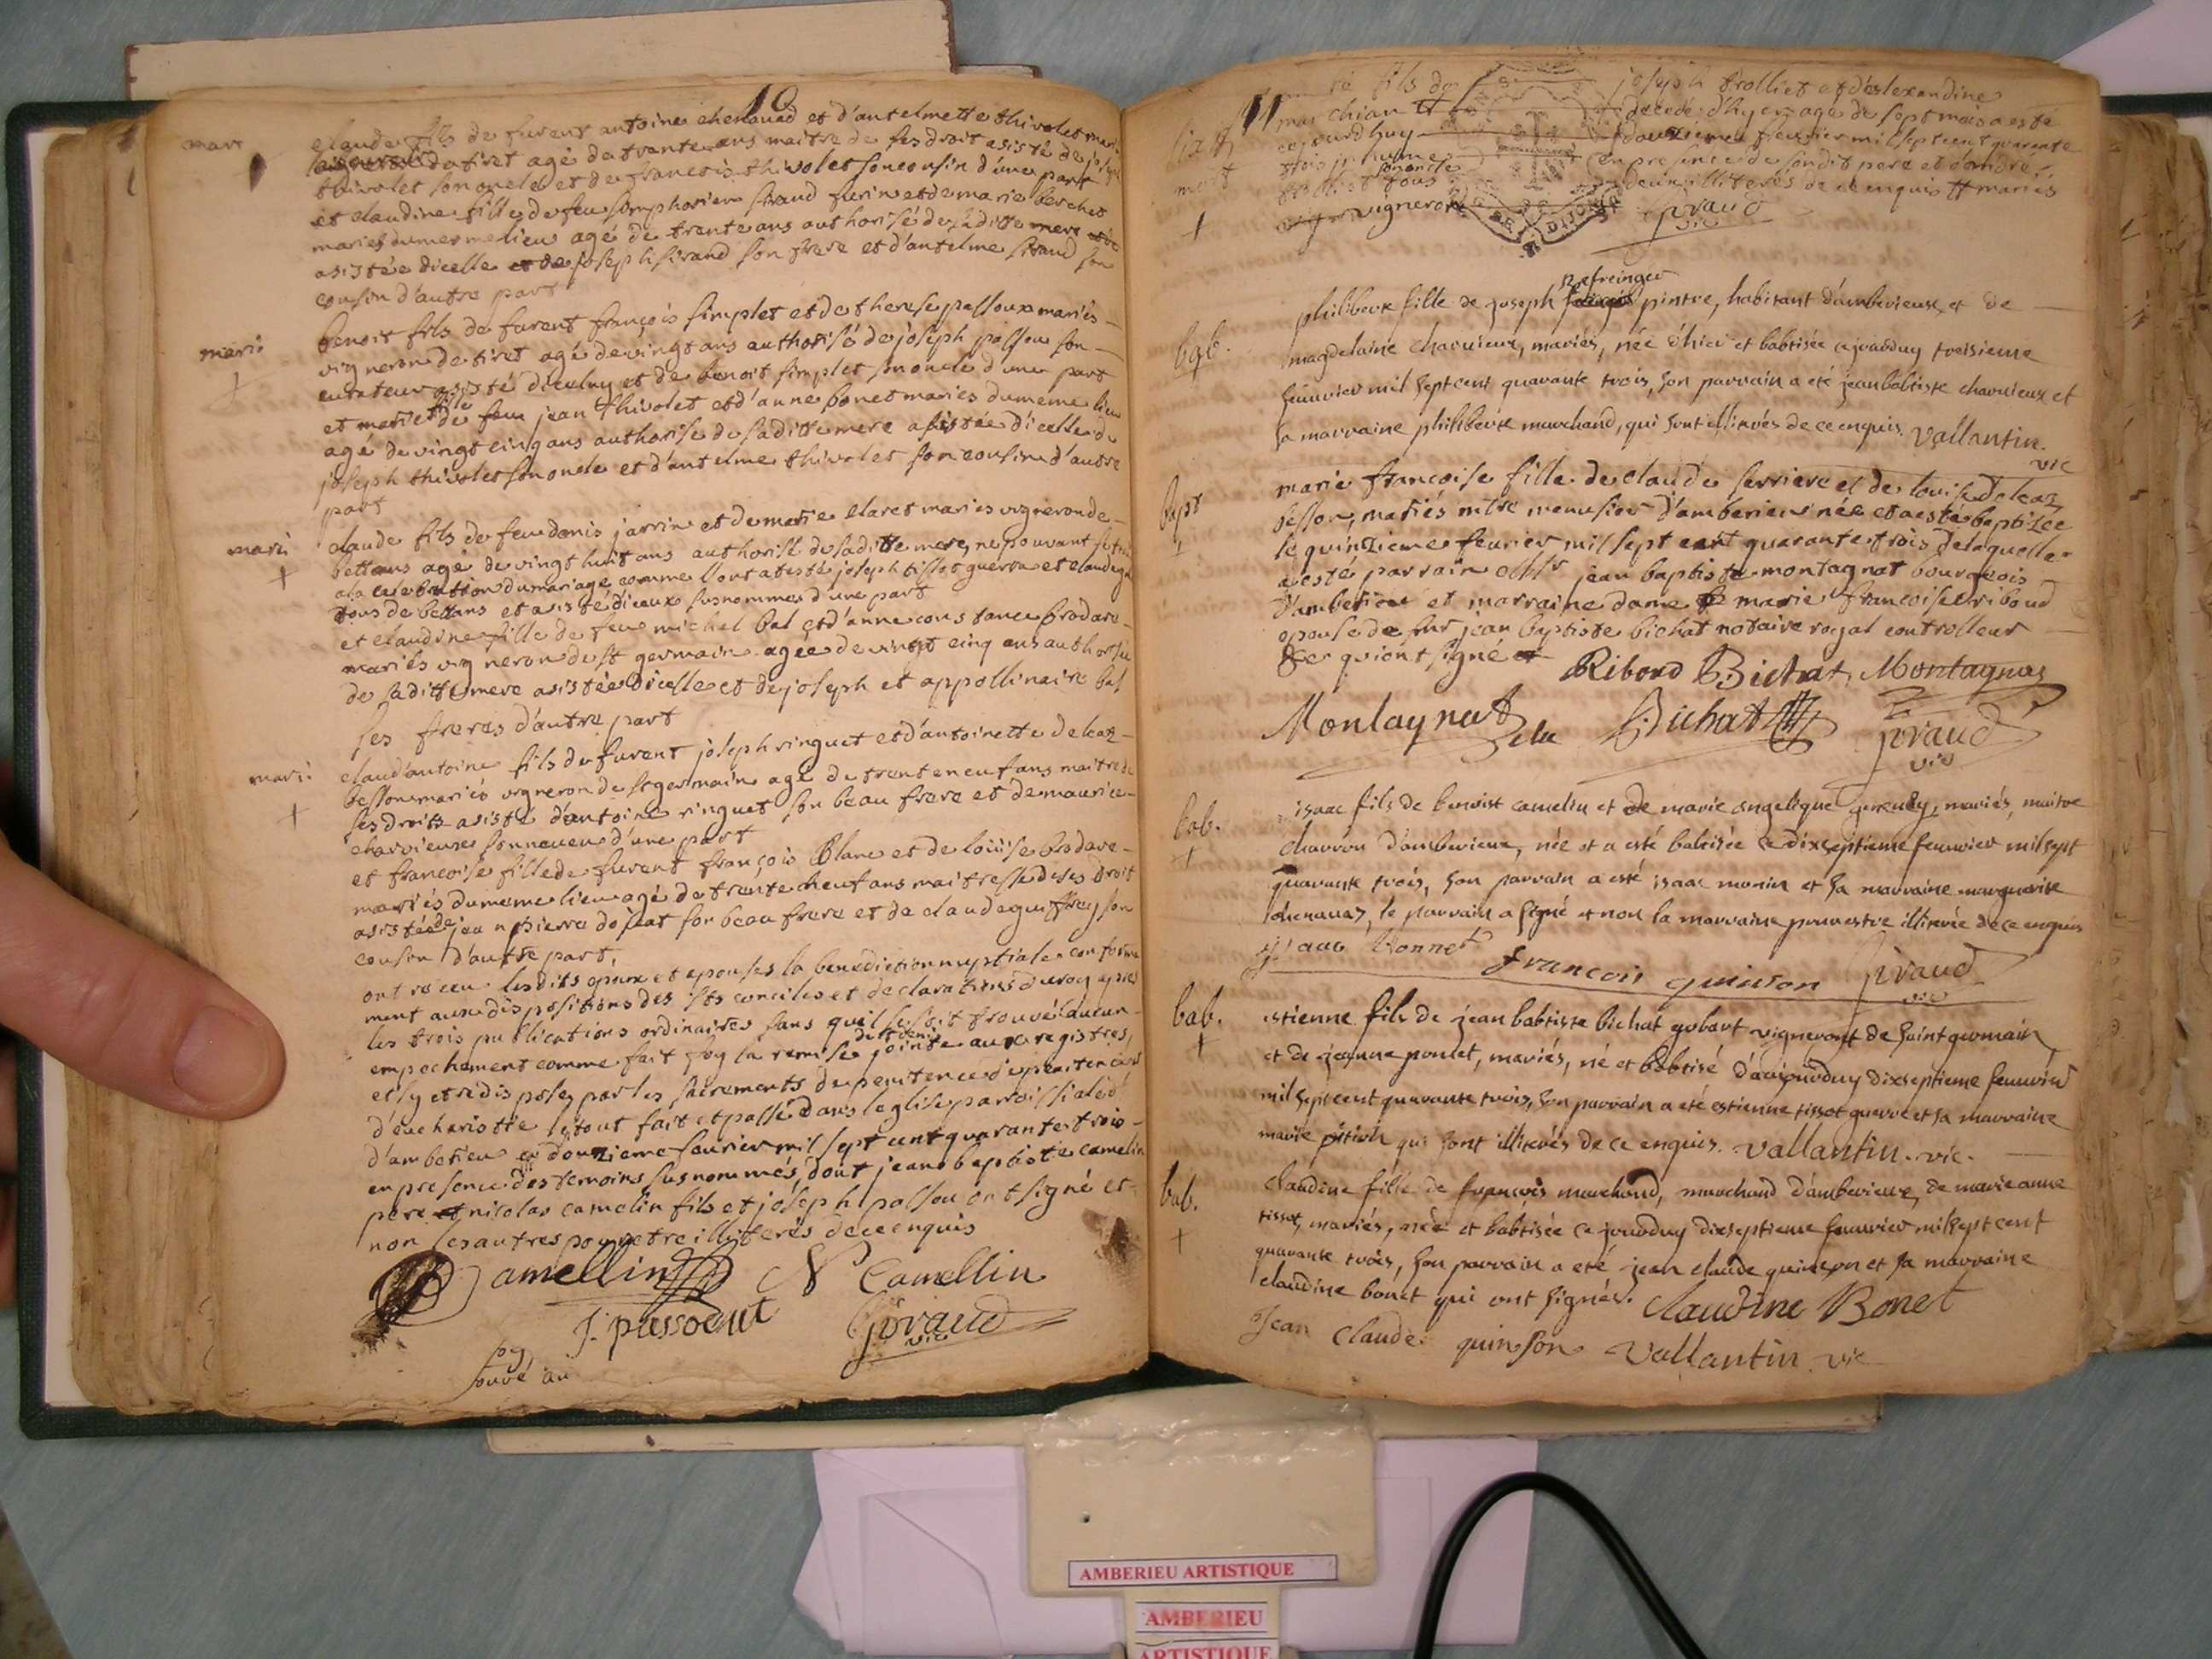 10
mari
claude fils de furent antoine chenavad et d'antelmette thivolet mariés
vigneron de tiret agé de trente ans maitre de ses droit asisté de joseph
thivolet son oncle et de francois thivolet son cousin d'une part
et claudine fille de feu simphorien sirand furin et de marie berchet
mariés du meme lieu agé de trente ans authorisé de saditte mere
asistée dicelle et de joseph sirand son frere et d'antelme sirand son
cousin d'autre part
mari
benoit fils de furent françois simplet et de therese passoux mariés
vigneron de tiret agé de vingt ans authorisé de joseph passou son
curateur asisté diceluy et de benoit simplet son oncle d'une part
et marie fille de feu jean thivolet et d'anne bonet mariés du meme lieu
agé de vingt cinq ans authorisé de saditte mere asistée d'icelle de
joseph thivolet son oncle et d'antelme thivolet son cousin d'autre
part
mari
claude fils de feu denis jarrin et de marie claret mariés vigneron de
bettans agé de vingt huit ans authorisé de saditte mere, ne pouvant
a la celebration du mariage comme l'ont atesté joseph tissot guerre et claude
tous de bettans et asisté d'iceux susnommes d'une part
et claudine fille de feu michel bal et d'anne constance brodare
mariés vigneron de st germain agée de vingt cinq ans authorisée
de saditte mere asistée dicelle et de joseph et appollinaire bal
ses freres d'autre part
mari
claud'antoine fils de furent joseph ringuet et d'antoinette deleaz
besson mariés vigneron de st germain agé de trente neuf ans maitre de
ses droits asisté d'antoine ringuet son beau frere et de maurice
charvieux son neveu d'une part
et francoise fille de furent françois Blanc et de loüise brodare
mariés du meme lieu agé de trente neuf ans maitresse de ses droit
asistée de jean pierre dojeat son beau frere et de claude guiffrey son
cousin d'autre part,
ont receu lesdits epoux et epouses la benediction nuptiale conforme
ment aux dispositions des sts conciles et declarations du roy apres
les trois publications ordinaires sans quil se soit trouvé aucun
empechement comme fait foy la remise jointe aux registres,
et sy etre disposez par les sacrements de penitence
d'eucharistie le tout fait et passé dans leglise parroissiale
d'amberieu ce douzieme feurier mil sept cent quarante trois
en presence des temoins susnommés, dont jean baptiste camelin
pere et nicolas camelin fils et joseph passou ont signé et
non les autres pour etre illiterés de ce enquis
Camellin N Camellin
J. passout Giraud
vic
11
mort
fils de joseph trolliet et d'alexandine
marchian decedé d'hyer agé de sept mois a esté
cejourdhuy douzieme feurier mil sept cent quarente
trois inhumé en presence de sondit pere et d'andré
tous deux illiterés de ce enquis mariés
vigneron Giraud
vic
bab.
philiberte fille de joseph pintre, habitant d'amberieux, et de
magdelaine charvieux, mariés, née d'hier et babtisée cejourduy troisieme
feuvrier mil sept cent quarante trois, son parrain a eté jean babtiste charvieux et
sa marraine philiberte marchand, qui sont illiterés de ce enquis. Vallantin.
vic
bapt
marie francoise fille de claude serriere et de louise deleaz
besson, mariés mtre menusier d'amberieu née et a esté baptizée
le quinzieme feurier mil sept cent quarante trois de laquelle
a esté parrain jean baptiste montagnat bourgeois
d'amberieu et marraine dame marie francoise riboud
epouse de sr jean baptiste bichat notaire royal controlleur
qui ont signé Riboud Bichat Montagnat
Montagnat Bichat Giraud
vic
bab.
isaac fils de benoist camelin et de marie angelique mariés, maitre
charron d'amberieux, née et a esté babtisée ce dixseptieme feuvrier mil sept
quarante trois, son parrain a esté isaac monin et sa marraine marguerite
chenavaz, le parrain a signé et non la marraine pour estre illiterée de ce enquis
francois quinson Giraud
vic
bab.
estienne fils de jean babtiste bichat gobart vigneront de saint germain
et de jeanne poncet, mariés, né et babtisé d'aujourduy dixseptieme feuvrier
mil sept cent quarante trois, son parrain a eté estienne tissot guerre et sa marraine
marie pitioh qui sont illiterés de ce enquis. Vallantin. vic.
bab.
claudine fille de françois marchand, marchand d'amberieux, de marie anne
tissot, mariés, née et babtisée ce jourduy dixseptieme feuvrier mil sept cent
quarante trois, son parrain a eté jean claude quinson et sa marraine
claudine bonet qui ont signés. Claudine Bonet
Jean Claude quinson Vallantin vic
AMBERIEU ARTISTIQUE
AMBERIEU
ARTISTIQUE